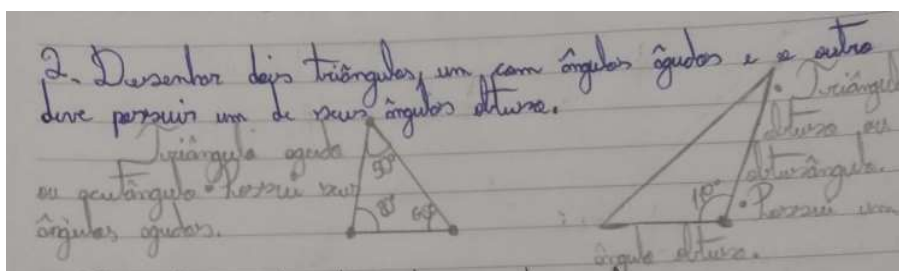 2. Desenhar dois triângulos, um com ângulos âgudos e o outro
deve possuir um de seus ângulos obtuso.
Triângulo agudo
ou acutângulo • Possui seus
ângulos agudos.
50°
60°
• Triângulo
obtuso ou
obtusângulo.
110°
• Possui um
ângulo obtuso.